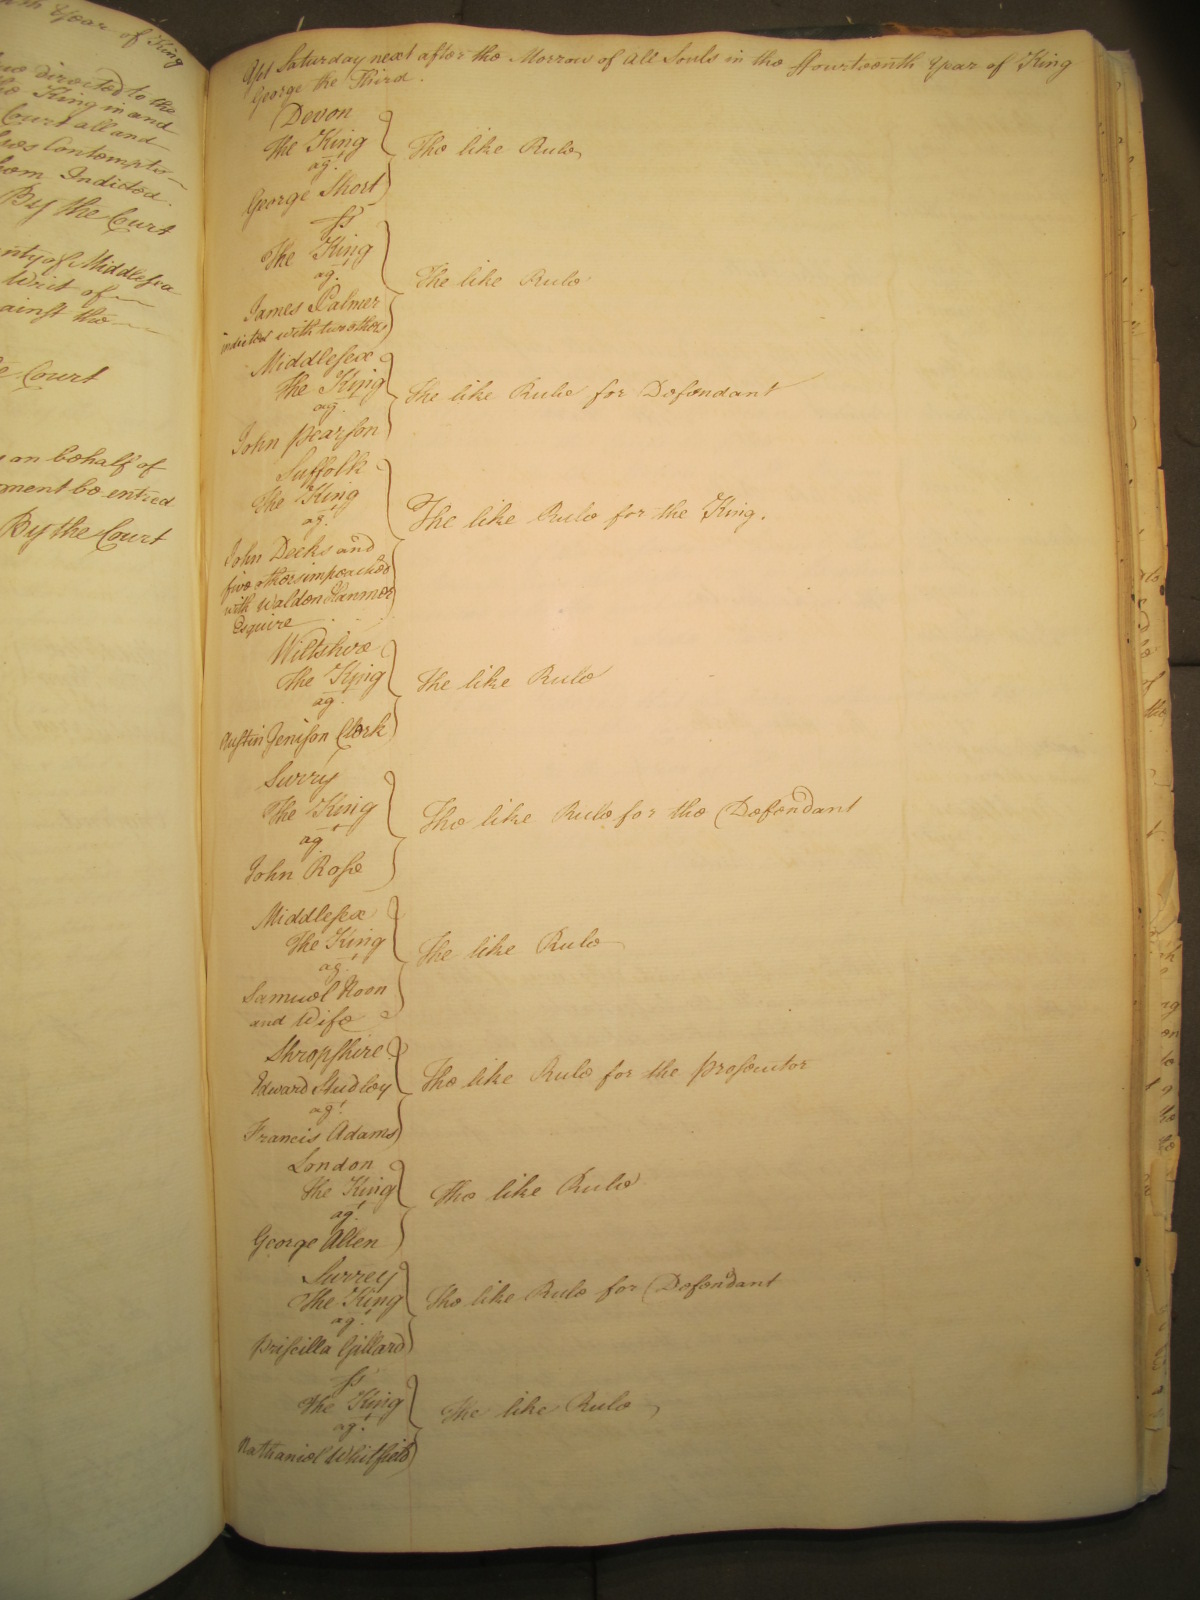 nth Year of King
directed to the
the King in and
Court all and
Contempts
whom Indicted.
By the Court
County of Middlesex
Writ of
against the
Court
on behalf of
Judgment be entred
By the Court
Yet Saturday next after the Morrow of All Souls in the ffourteenth Year of King
George the Third.
Devon
The King
agt.
George Short
The like Rule
Ss
The King
agt.
James Palmer
indicted with two others
The like Rule
Middlesex
The King
agt.
John Pearson
The like Rule for Defendant
Suffolk
The King
agt.
John Decks and
five others impeached
with Waldon Hanmer
Esquire
The like Rule for the King.
Wiltshire
The King
agt.
Austin Jenison Clerk
The like Rule
Surry
The King
agt
John Rose
The like Rule for the Defendant
Middlesex
The King
agt.
Samuel Koon
and Wife
The like Rule
Shropshire
Edward Studley
agt.
Francis Adams
The like Rule for the Prosecutor
London
The King
agt.
George Allen
The like Rule
Surrey
The King
agt.
Priscilla Gillard
The like Rule for Defendant
Ss
The King
agt.
Nathaniel Whitfield
The like Rule